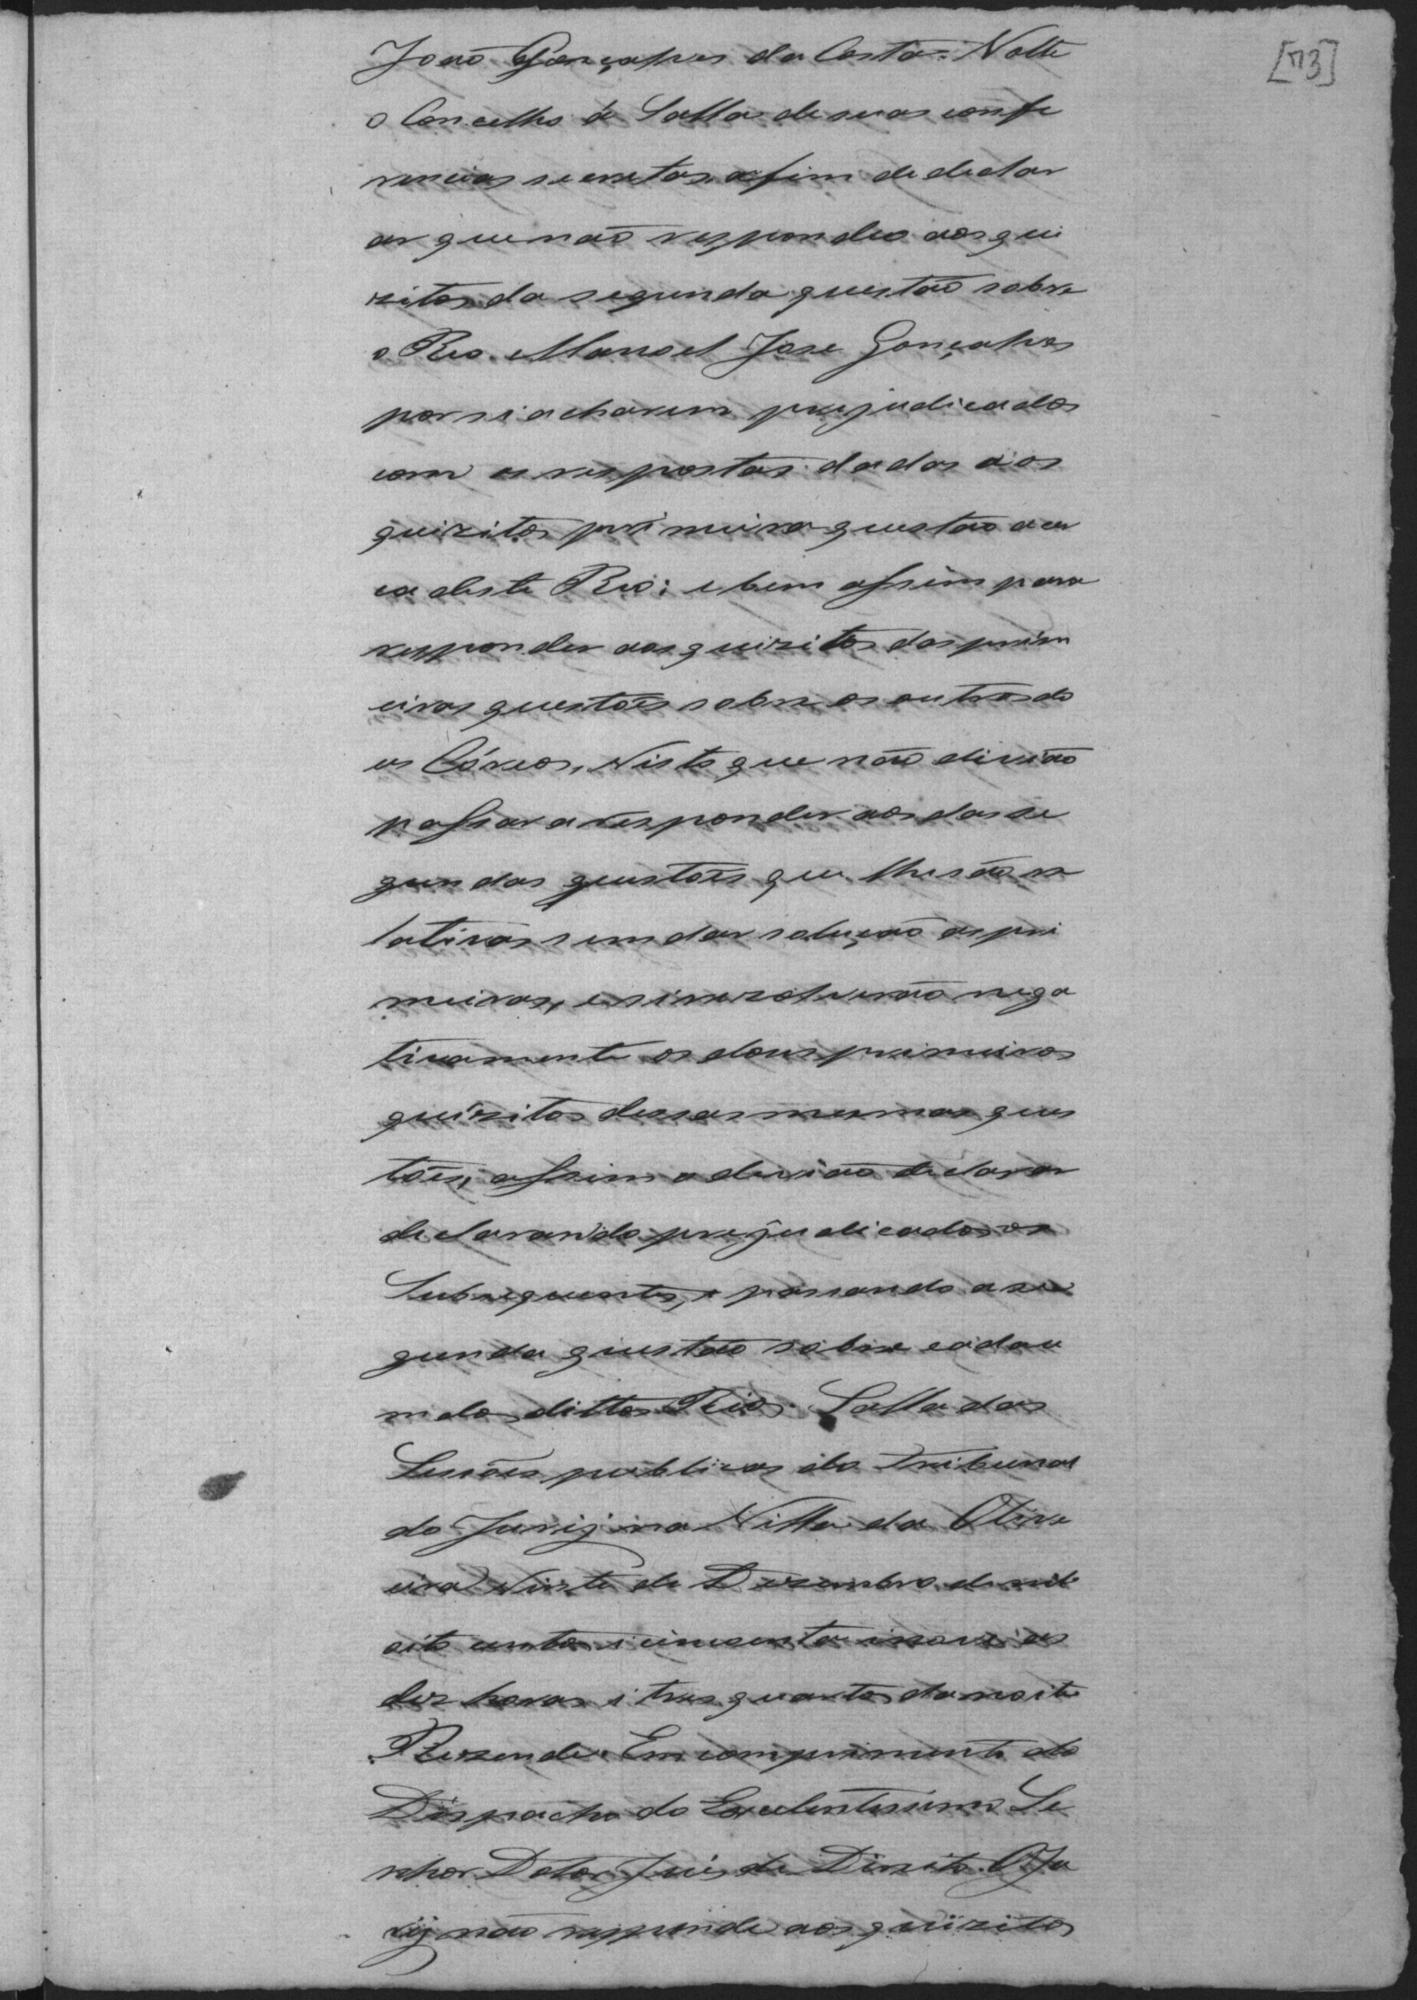 [73]
João Gonçalves da Costa. Volte
o Concelho à Salla de suas confe
rencias secretas afim de declar
ar que não respondeo aos qui
zitos da segunda questão sobre
o Reo Manoel Jose Gonçalves
por si acharem prejudicados
com as respostas dadas aos
quizitos primeira questão acer
ca deste Reo: e bem assim para
responder aos quizitos das prim
eiras questões sobre os outros do
us Córeos, visto que não devião
passar a responder aos das se
gundas questões que lhe são re
lativas sem dar solução as pri
meiras, e si rezolverão nega
tivamente os dous primeiros
quizitos dessas mesmas ques
tões, assim o devião declarar
declarando prejudicados os
Subsequentes, e passando a se
gunda questão sobre cada u
m dos dittos Rios. Salla das
Sessões publicas do Tribunal
do Jurij na Villa da Olive
ira vinte de Dezembro de mil
oito centos i cincoenta i nove as
dez horas i tres quartos da noite
Rezende. Em comprimento do
Dispacho do Excelentissimo Se
nhor Dotor Juis de Direito. O Ju
rij não responde aos quizitos